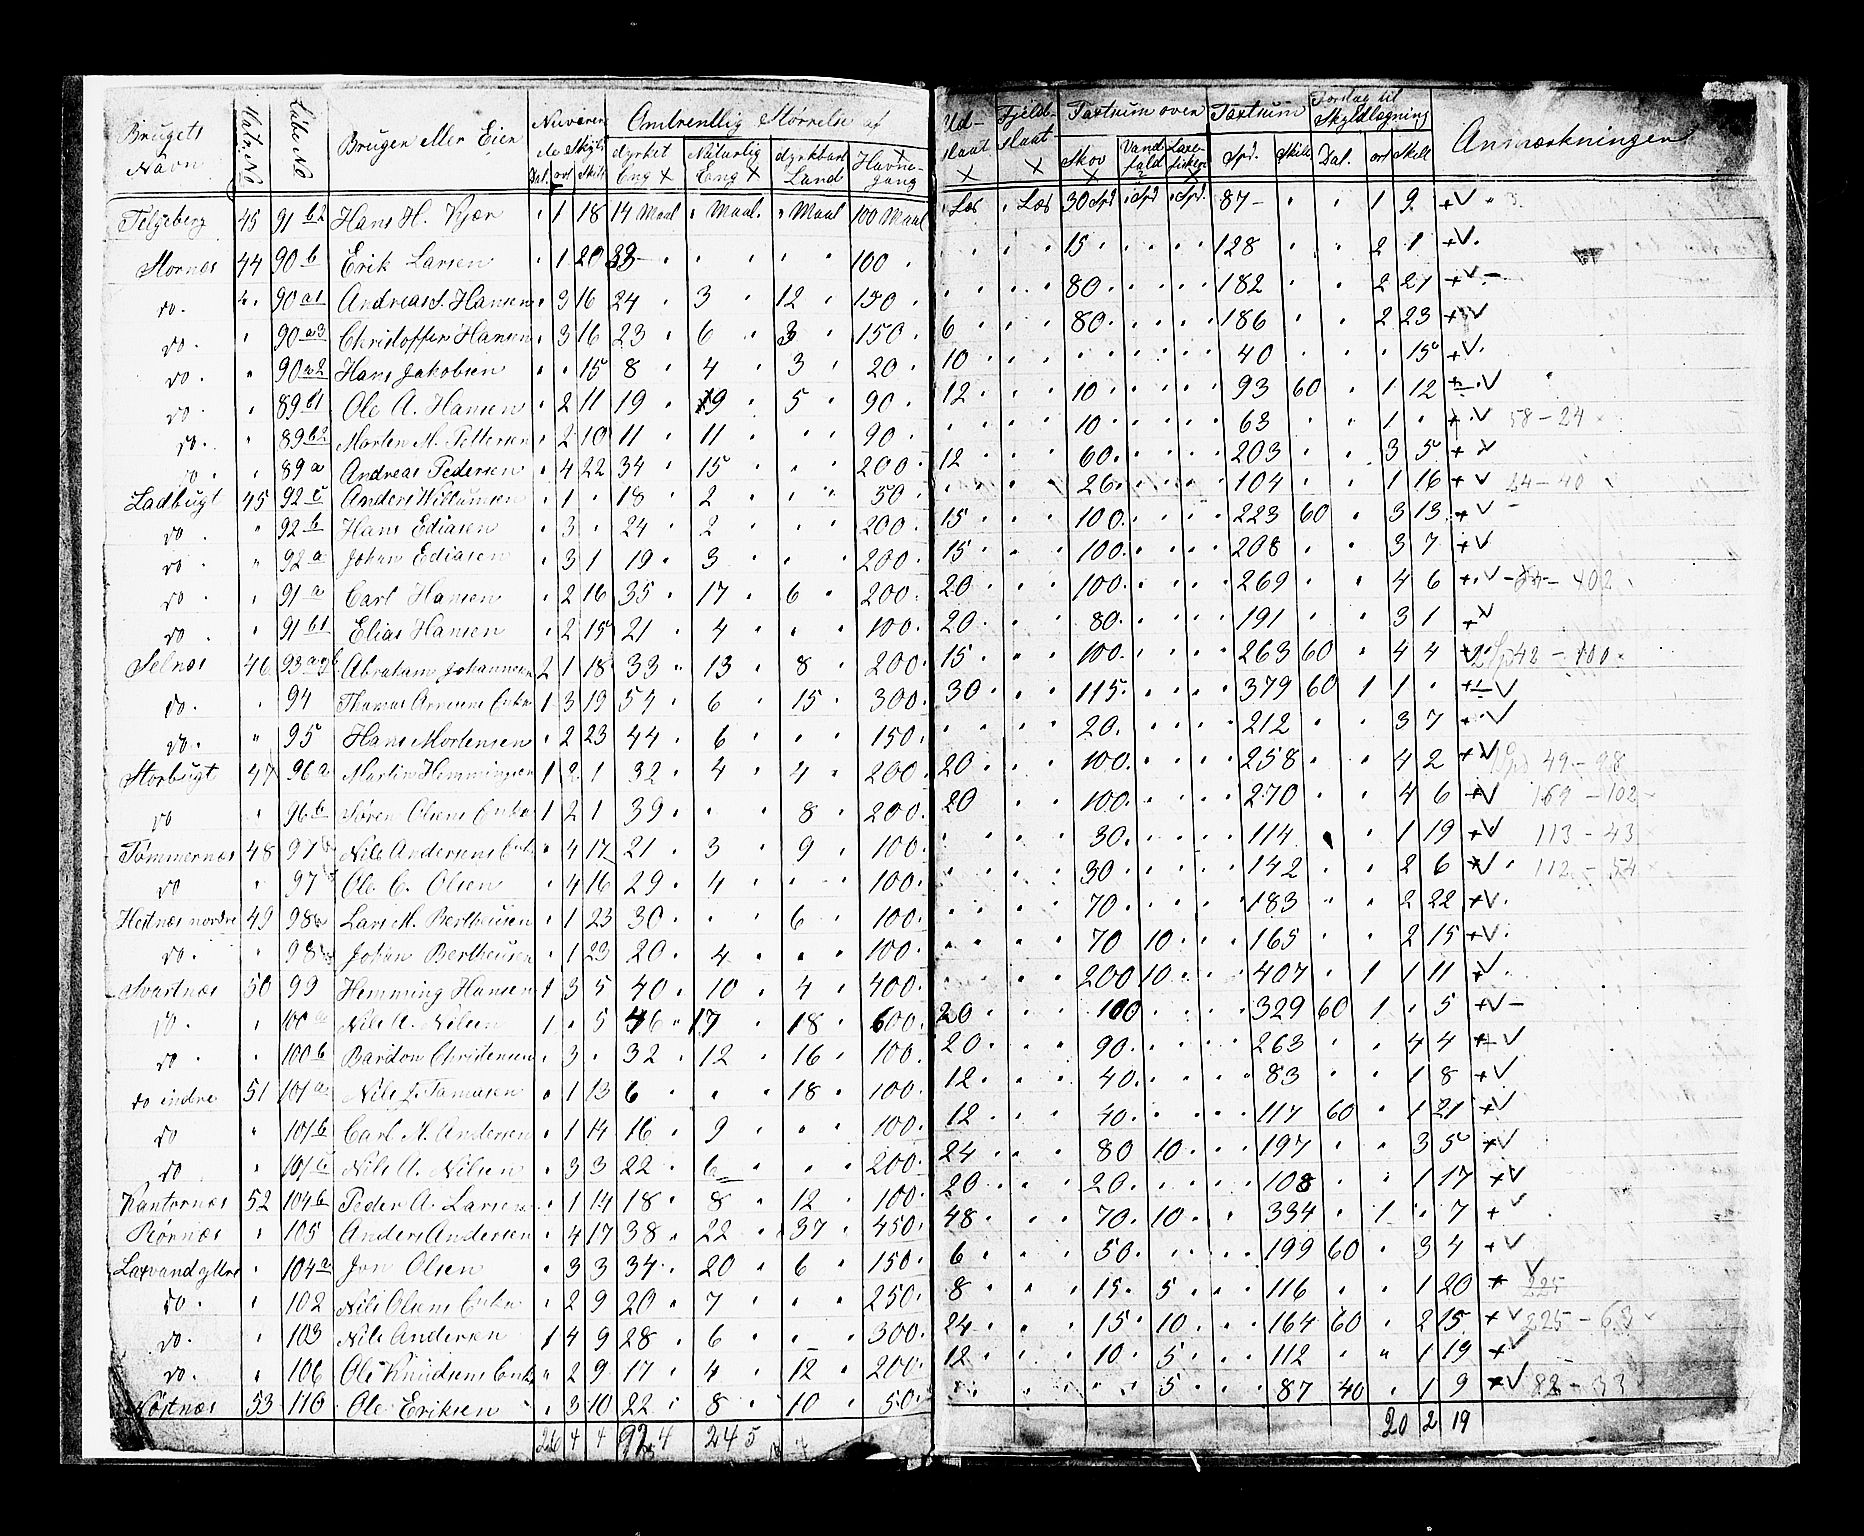 Brugets Navn | Matr. No | Løbe No | Bruger eller Eier | Nuværende Skyld Dal. ort Skill | Omtrentlig Størrelse af dyrket Eng × | Naturlig Eng × | dyrkbart Land | Havnegang | Udslaat × | Fjeldslaat × | Taxtrum over Skov × | Vandfald | Laxefiskeri × | Taxtrum Spd. Skill | Forslag til Skyldlægning Dal. ort Skill | Anmærkninger
45 91 b2 Hans H. Kjær " 1 18 14 Maal " Maal. " Maal 100 Maal " Læs " Læs 30 Spd " Spd " Spd. 87 - " " 1 9 +V
Stornes 44 90 b Erik Larsen " 1 20 33 " " " 100 " " 15 " " 128 " " 2 1 +V.
do. " 90 a1 Andreas J. Hansen " 3 16 24 3 12 150 " " 80 " " 182 " " 2 21 +V
do. " 90 a3 Christoffer Hansen " 3 16 23 6 3 150 6 " 80 " " 186 " " 2 23 +V
do. " 90 a2 Hans Jakobsen " " 15 8 4 3 20 10 " " " " 40 " " " 15 +V.
do. " 89 b1 Ole A. Hansen " 2 11 19 9 5 90 12 " 10 " " 93 60 " 1 12 +V
do. " 89 b2 Morten M. Pettersen " 2 10 11 11 " 90 " " 10 " " 63 " " 1 " +V 58-24
do. " 89 a Andreas Pedersen " 4 22 34 15 " 200 12 " 60 " " 203 " " 3 5 +V
Ladbugt 45 92 c Anders Willumsen " 1 " 18 2 " 50 " " 26 " " 104 " " 1 16 +V
do. " 92 b Hans Ediasen " 3 " 24 2 " 200 15 " 100 " " 223 60 " 3 13 +V
do. " 92 a Johan Ediasen " 3 1 19 3 " 200 15 " 100 " " 208 " " 3 7 +V
do. " 91 a Carl Hansen " 2 16 35 17 6 200 20 " 100 " " 269 " " 4 6 +V
do. " 91 b1 Elias Hansen " 2 15 21 4 " 100 20 " 80 " " 191 " " 3 1 +V
Selnes 46 93 Abraham Johannesen 2 1 18 33 13 8 200 15 " 100 " " 263 60 " 4 4 42-100
do. " 94 Thomas Arnesens Enke 1 3 19 54 6 15 300 30 " 115 " " 379 60 1 1 " +V
do. " 95 Hans Mortensen " 2 23 44 6 " 150 " " 20 " " 212 " " 3 7 +V
Storbugt 47 96 a Martin Hemmingsen 1 2 1 32 4 4 200 20 " 100 " " 258 " " 4 2 +V 49-98
do " 96 b Søren Olsens Enke 1 2 1 39 " 8 200 20 " 100 " " 270 " " 4 6 +V 169-102
Tømmernæs 48 97 Nils Andersens Enke " 4 17 21 3 9 100 " " 30 " " 114 " " 1 19 +V 113-43
do " 97 Ole C. Olsen " 4 16 29 4 " 100 " " 30 " " 142 " " 2 6 +V 112-54
Hestnæs nordre 49 98 Lars M. Bertheusen " 1 23 30 " 6 100 " " 70 " " 183 " " 2 22 +V.
do. " 98 Johan Bertheusen " 1 23 20 4 " 100 " " 70 10 " 165 " " 2 15 +V
Svartnæs 50 99 Hemming Hansen 1 3 5 40 10 4 400 " " 200 10 " 407 " 1 1 11 +V.
do. " 100 a Nils A. Nilsen 1 " 5 46 17 18 600 20 " 100 " " 329 60 1 " 5 +V-
do. " 100 b Bardon Christensen " 3 " 32 12 16 100 20 " 90 " " 263 " " 4 4 +V
do indre 51 101 a Nils J. Tomasen " 1 13 6 " 18 100 12 " 40 " " 83 " " 1 8 +V
do " 101 b Carl M. Andersen " 1 14 16 9 " 100 12 " 40 " " 117 60 " 1 21 +V
do " 101 c Nils A. Nilsen " 3 3 22 6 " 200 24 " 80 10 " 197 " " 3 5 +V
Kantornæs 52 104 b Peder A. Larsen " 1 14 18 8 12 100 20 " 20 " " 108 " " 1 17 +V
Rørnæs " 105 Anders Andersen " 4 17 38 22 37 450 48 " 70 10 " 334 " 1 " 7 +V
Laxvand yttre " 104 a Jon Olsen " 3 3 34 20 6 150 6 " 50 " " 199 60 " 3 4 +V
do. " 102 Nils Olsens Enke " 2 9 20 7 " 250 8 " 15 5 " 116 " " 1 20 + V 225
do. " 103 Nils Andersen 1 4 9 28 6 " 300 24 " 15 10 " 164 60 " 2 15 +V 225-63
do. " 106 Ole Knudsens Enke " 2 9 17 4 12 200 12 " 10 5 " 112 " " 1 19 +V
53 110 Ole Eriksen " 3 10 22 8 10 50 " " " 5 " 87 40 " 1 9 +V 82-33
26 4 4 924 245 20 2 19